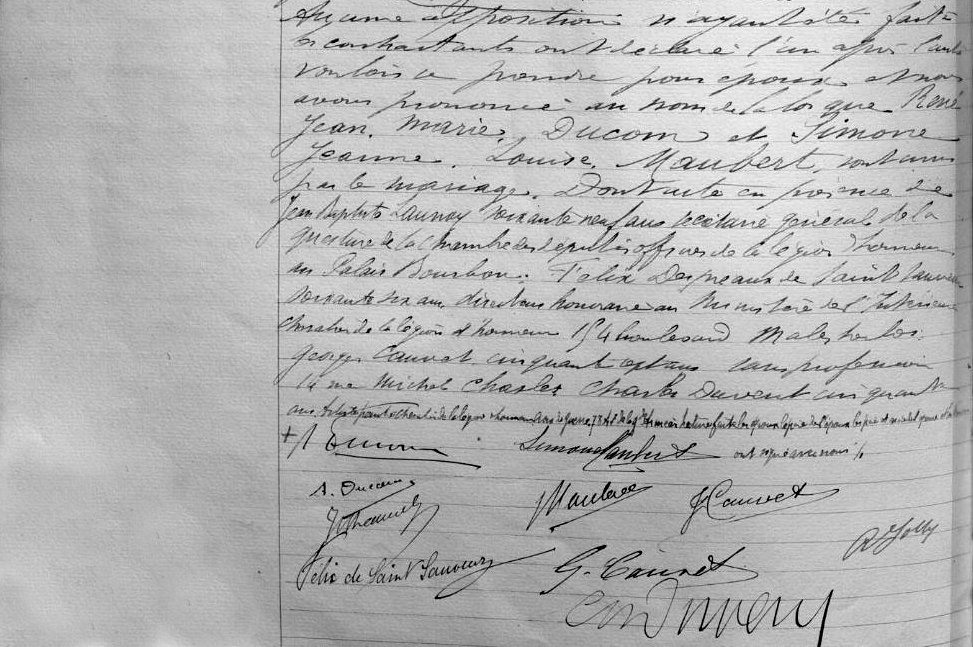 Aucune opposition n'ayant été faite
les contractants ont déclaré l'un après l'autre
vouloir se prendre pour époux et nous
avons prononcé au nom de la loi que René
Jean, Marie, Ducom et Simone
Jeanne, Louise, Maubert, sont unis
par le mariage. Dont acte en présence de
Jean Baptiste Launay soixante neuf ans secrétaire général de la
questure de la Chambre des députés officier de la légion d'honneur
au Palais Bourbon. Félix Despreaux de Saint Sauveur
soixante six ans directeur honoraire au Ministère de l'Intérieur
Chevalier de la légion d'honneur 154 boulevard Malesherbes
Georges Cauvet cinquante sept ans sans profession
rue Michel Chasles Charles Duvent cinquante
ans artiste peintre chevalier de la légion d'honneur
Simone Maubert ont signé avec nous
A. Ducom
J Cauvet
Félix de Saint Sauveur
G. Cauvet
Ch Duvent